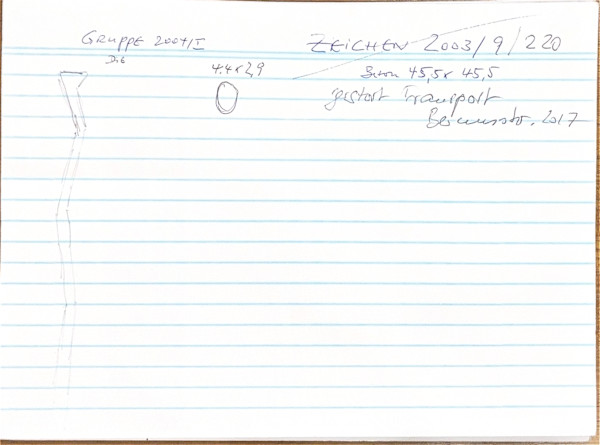 GRUPPE 2004/I
Dib
4.4 x 2,9
ZEICHEN 2003/9/220
45,5 x 45,5
zerstört Transport
2017